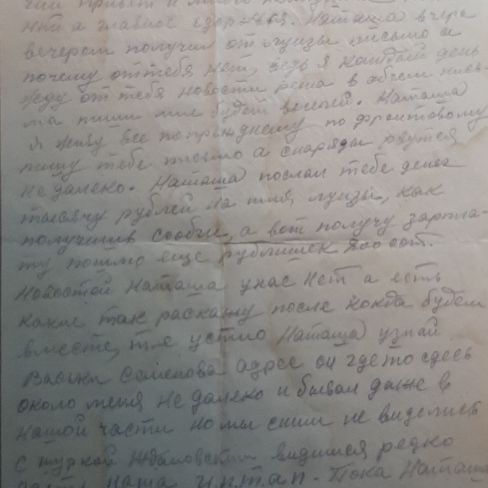 чий привет и много
нет а главное здоровья. Наташа вчера
вечером получил от Луизы письмо а
почему от тебя нет, ведь я каждый день
жду от тебя новости
пиши мне будет веселей. Наташа
я живу все попрежнему по фронтовому
пишу тебе письмо а снаряды рвутся
не далеко. Наташа послал тебе денег
тысячу рублей на имя Луизы, как
получишь сообщи, а вот получу зарпла-
ту пошлю еще рублишек
Новостей Наташа у нас нет а есть
какие так раскажу после когда будем
вместе, Наташа узнай
Васьки Семенова адрес он где то сдесь
около меня не далеко и бывал даже в
нашой части но мы сним не виделись
с видимся редко
Пока Наташа